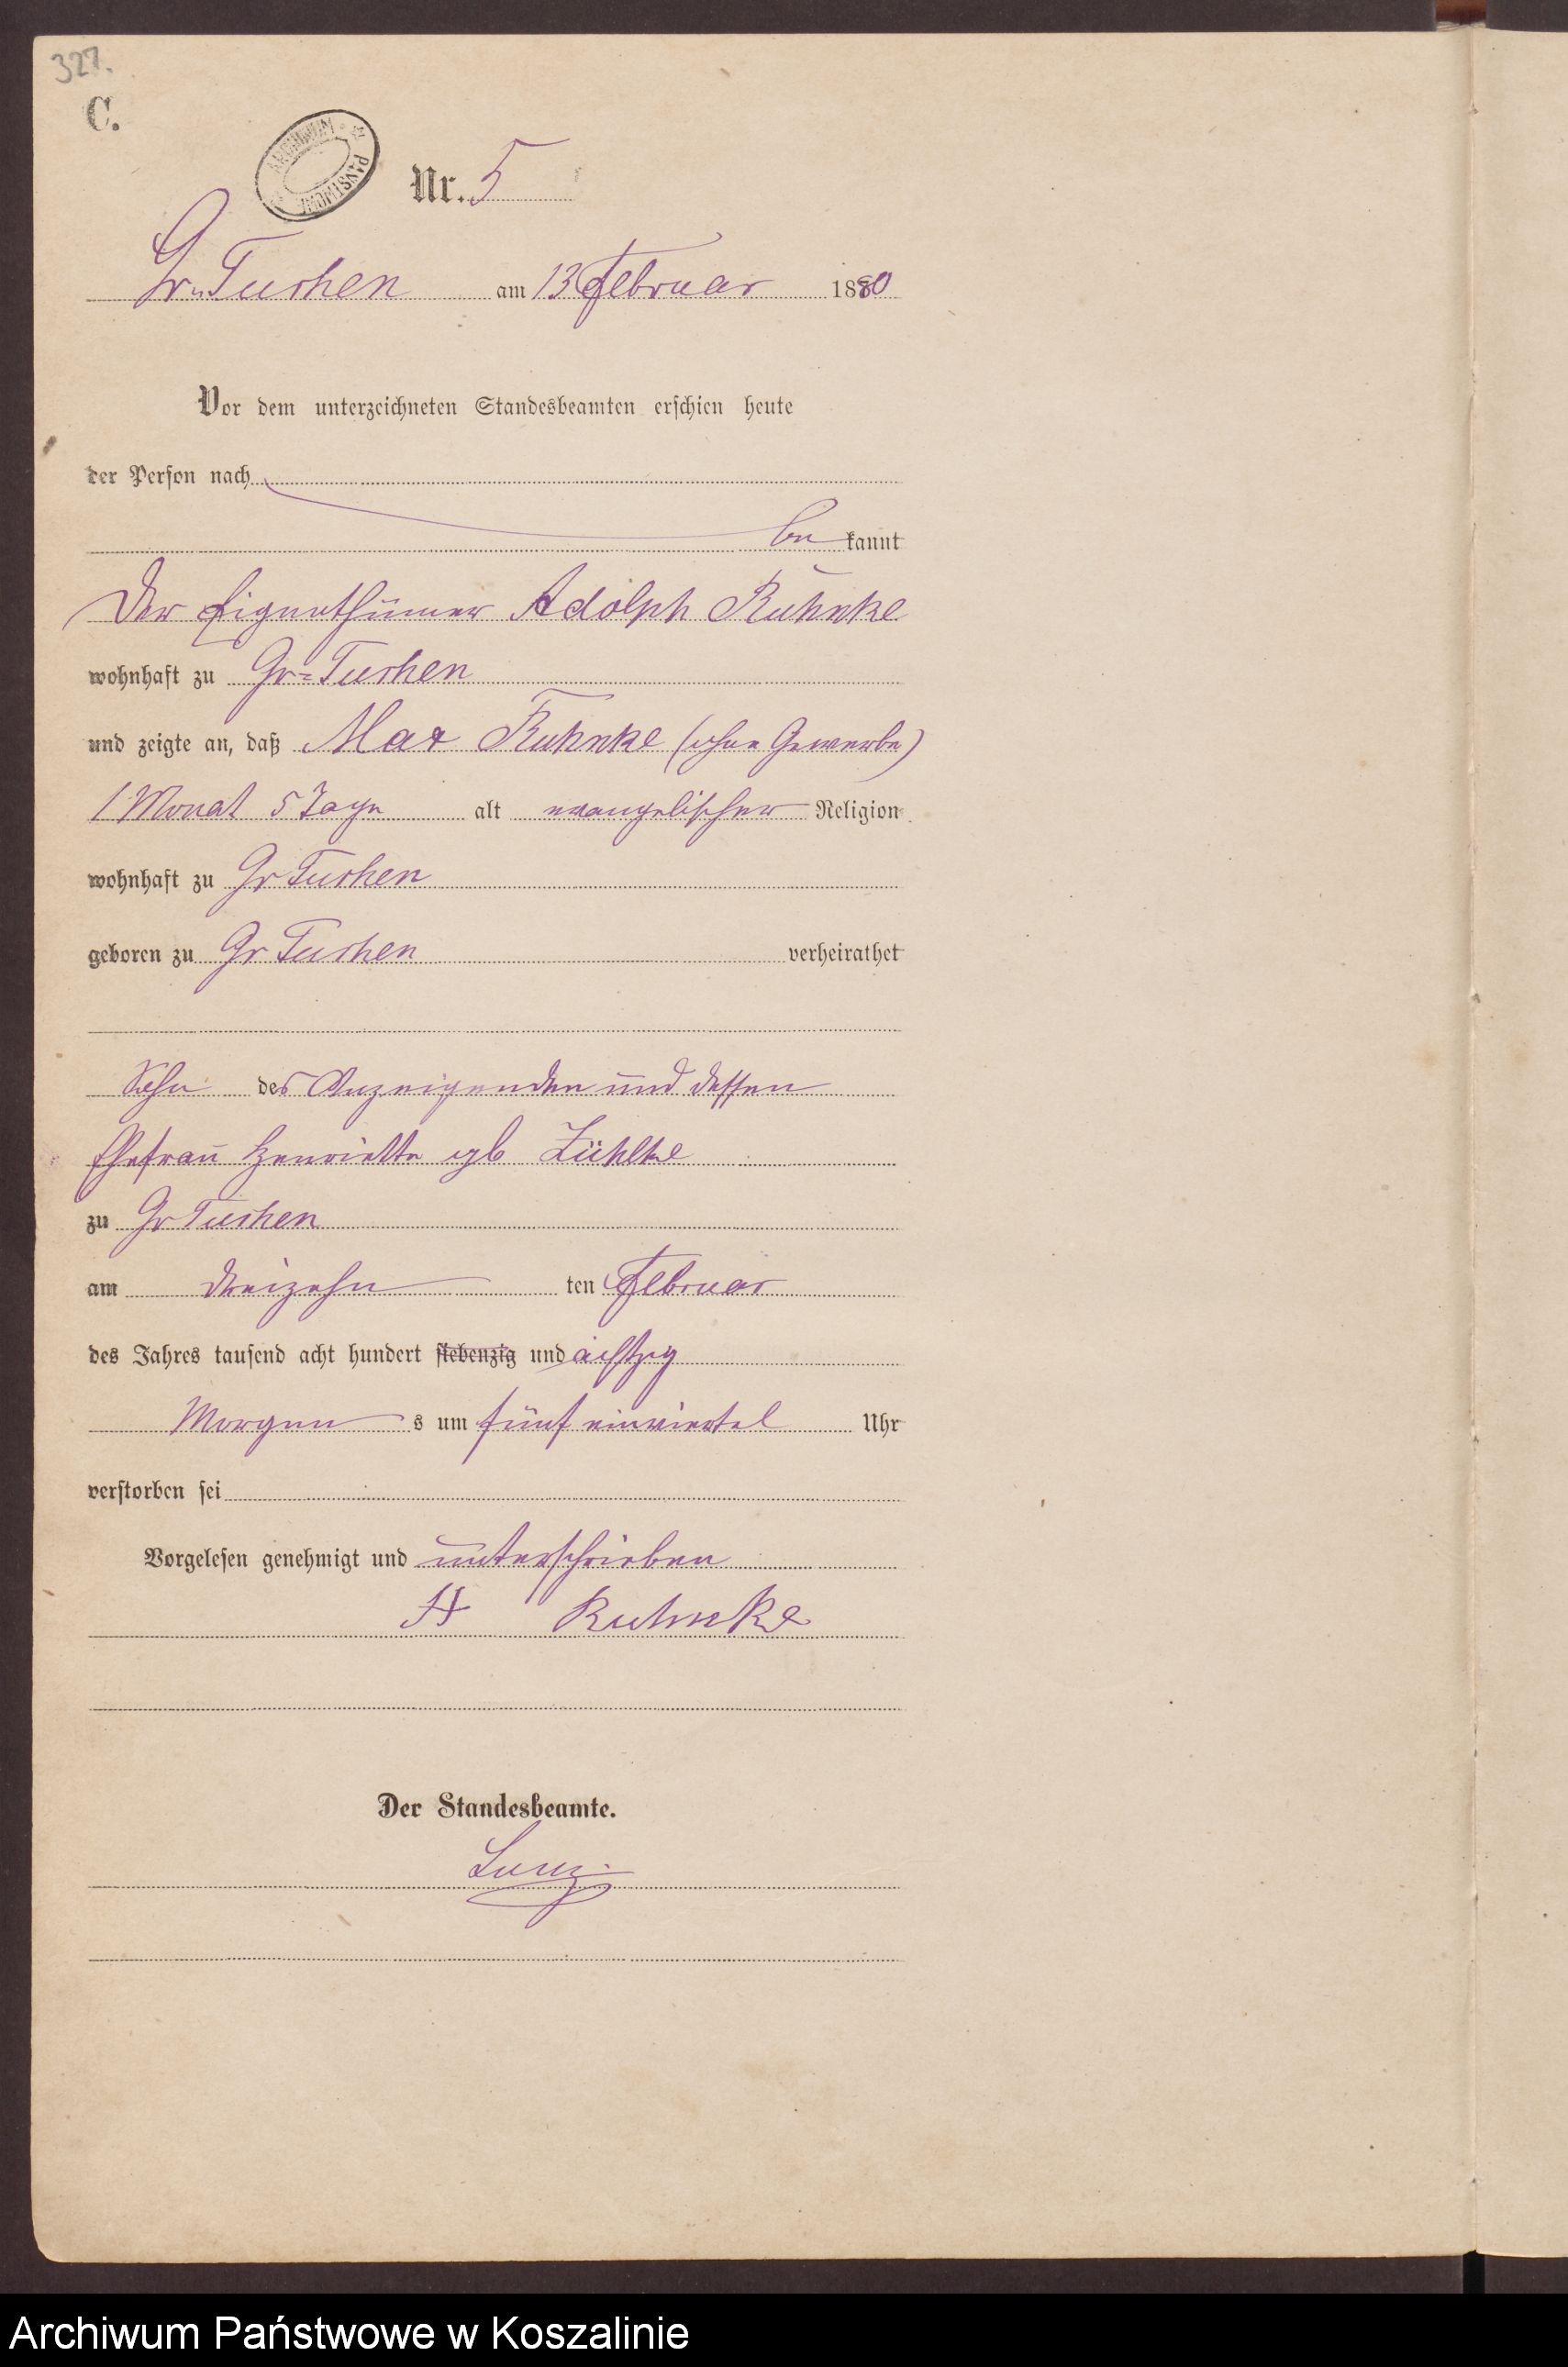 327.
C.
ARCHIWUM PAŃSTWOWE
Nr. 5
Gr. Tuchen am 13 Februar 1880
Vor dem unterzeichneten Standesbeamten erschien heute
der Person nach
be kannt
Der Eigenthümer Adolph Ruhnke
wohnhaft zu Gr=Tuchen
und zeigte an, daß Max Ruhnke (ohne Gewerbe)
1 Monat 5 Tage alt evangelischer Religion
wohnhaft zu Gr Tuchen
geboren zu Gr Tuchen verheirathet
Sohn des Anzeigenden und dessen
Ehefrau Henriette geb Zühlke
zu Gr Tuchen
am dreizehn ten Februar
des Jahres tausend acht hundert siebenzig und achtzig
Morgen s um fünf einviertel Uhr
verstorben sei
Vorgelesen genehmigt und unterschrieben
A Ruhnke
Der Standesbeamte.
Archiwum Państwowe w Koszalinie